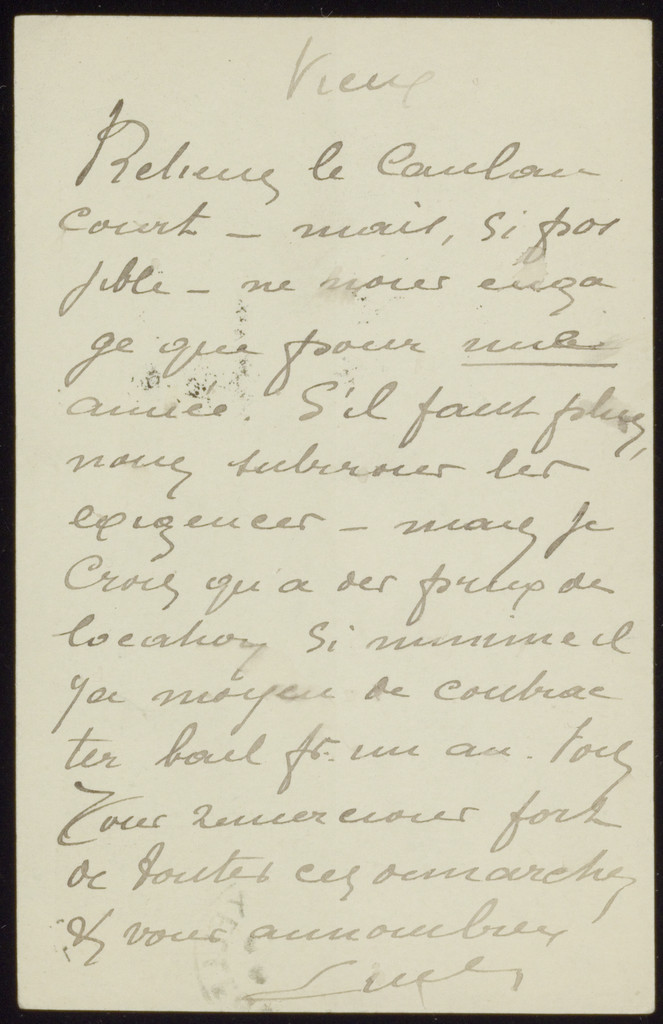 Vieux
Retiens le Caulain
court – mais, si pos
sible – ne nous enga
ge que pour une
année. S'il faut plus,
nous subirons les
exigences – mais je
crois qu'a des prix de
location si minime il
y a moyen de contrac
ter bail pr. un an. Tous
vous remercions fort
de toutes ces demarches
& vous